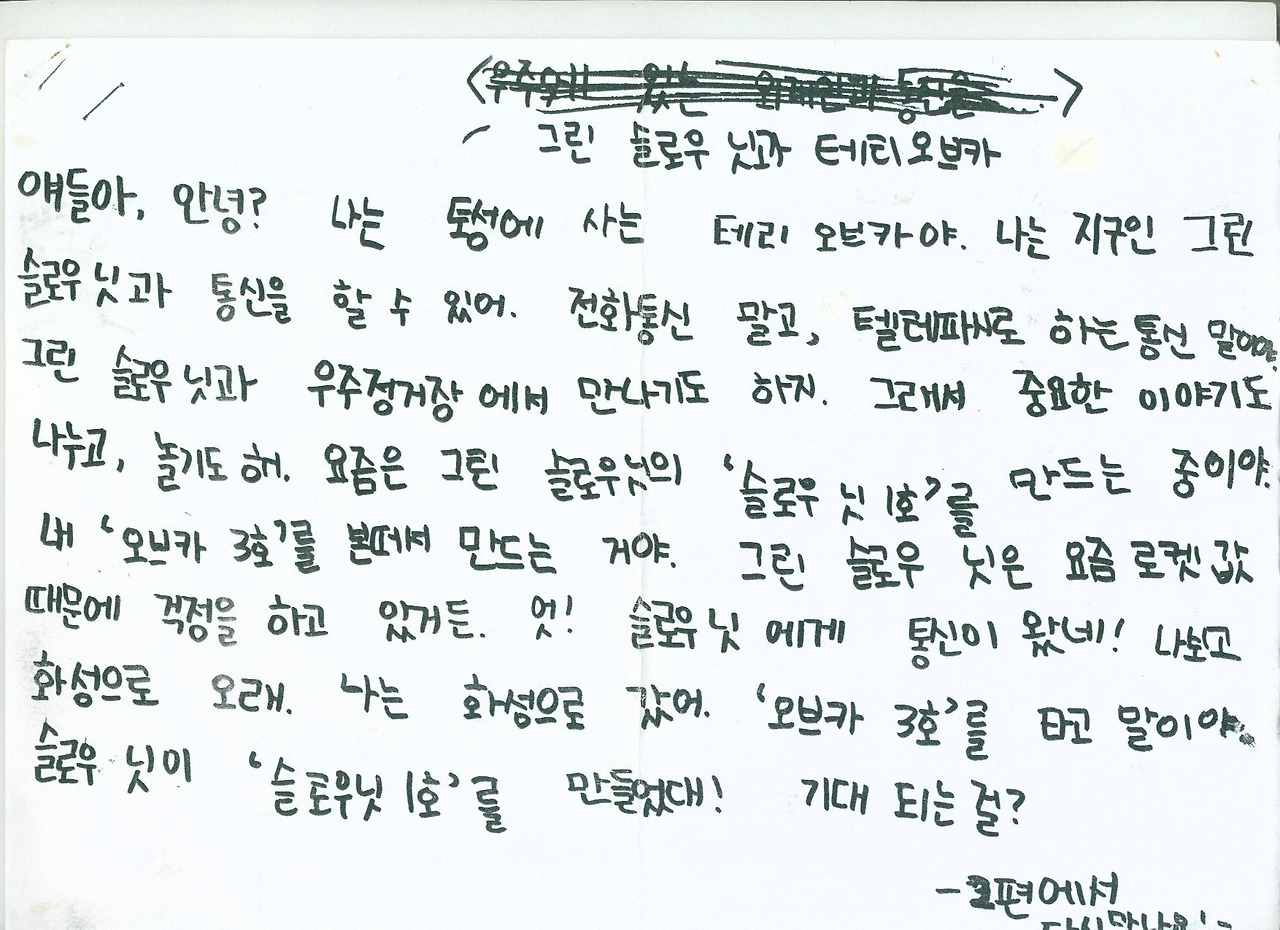 <우주에 있는 외계인과 통신을>
그린 슬로우 닛과 테티오브카
얘들아, 안녕? 나는 통성에 사는 테리 오브카야. 나는 지구인 그린
슬로우 닛과 통신을 할 수 있어. 전화통신 말고, 텔레파시로 하는 통신 말이야.
그린 슬로우 닛과 우주정거장에서 만나기도 하지. 그래서 중요한 이야기도
나누고, 놀기도 해. 요즘은 그린 슬로우닛의 '슬로우 닛 1호'를 만드는 중이야.
내 '오브카 3호'를 본떠서 만드는 거야. 그린 슬로우 닛은 요즘 로켓 값
때문에 걱정을 하고 있거든. 엇! 슬로우 닛에게 통신이 왔네! 나보고
화성으로 오래. 나는 화성으로 갔어. '오브카 3호'를 타고 말이야.
슬로우 닛이 '슬로우닛 1호'를 만들었대! 기대 되는 걸?
-2편에서
다시만나요!-